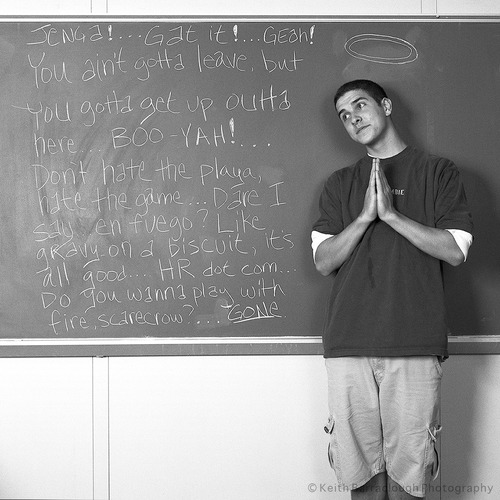 JENGA!...Gat it!...GEah!
You ain't gotta leave, but
You gotta get up outta
here... BOO-YAH!...
Don't hate the playa,
hate the game... Dare I
say, en fuego? Like
gravy on a biscuit, it's
all good.... HR dot com...
Do you wanna play with
fire, scarecrow?... GONE.
© Keith Barraclough Photography